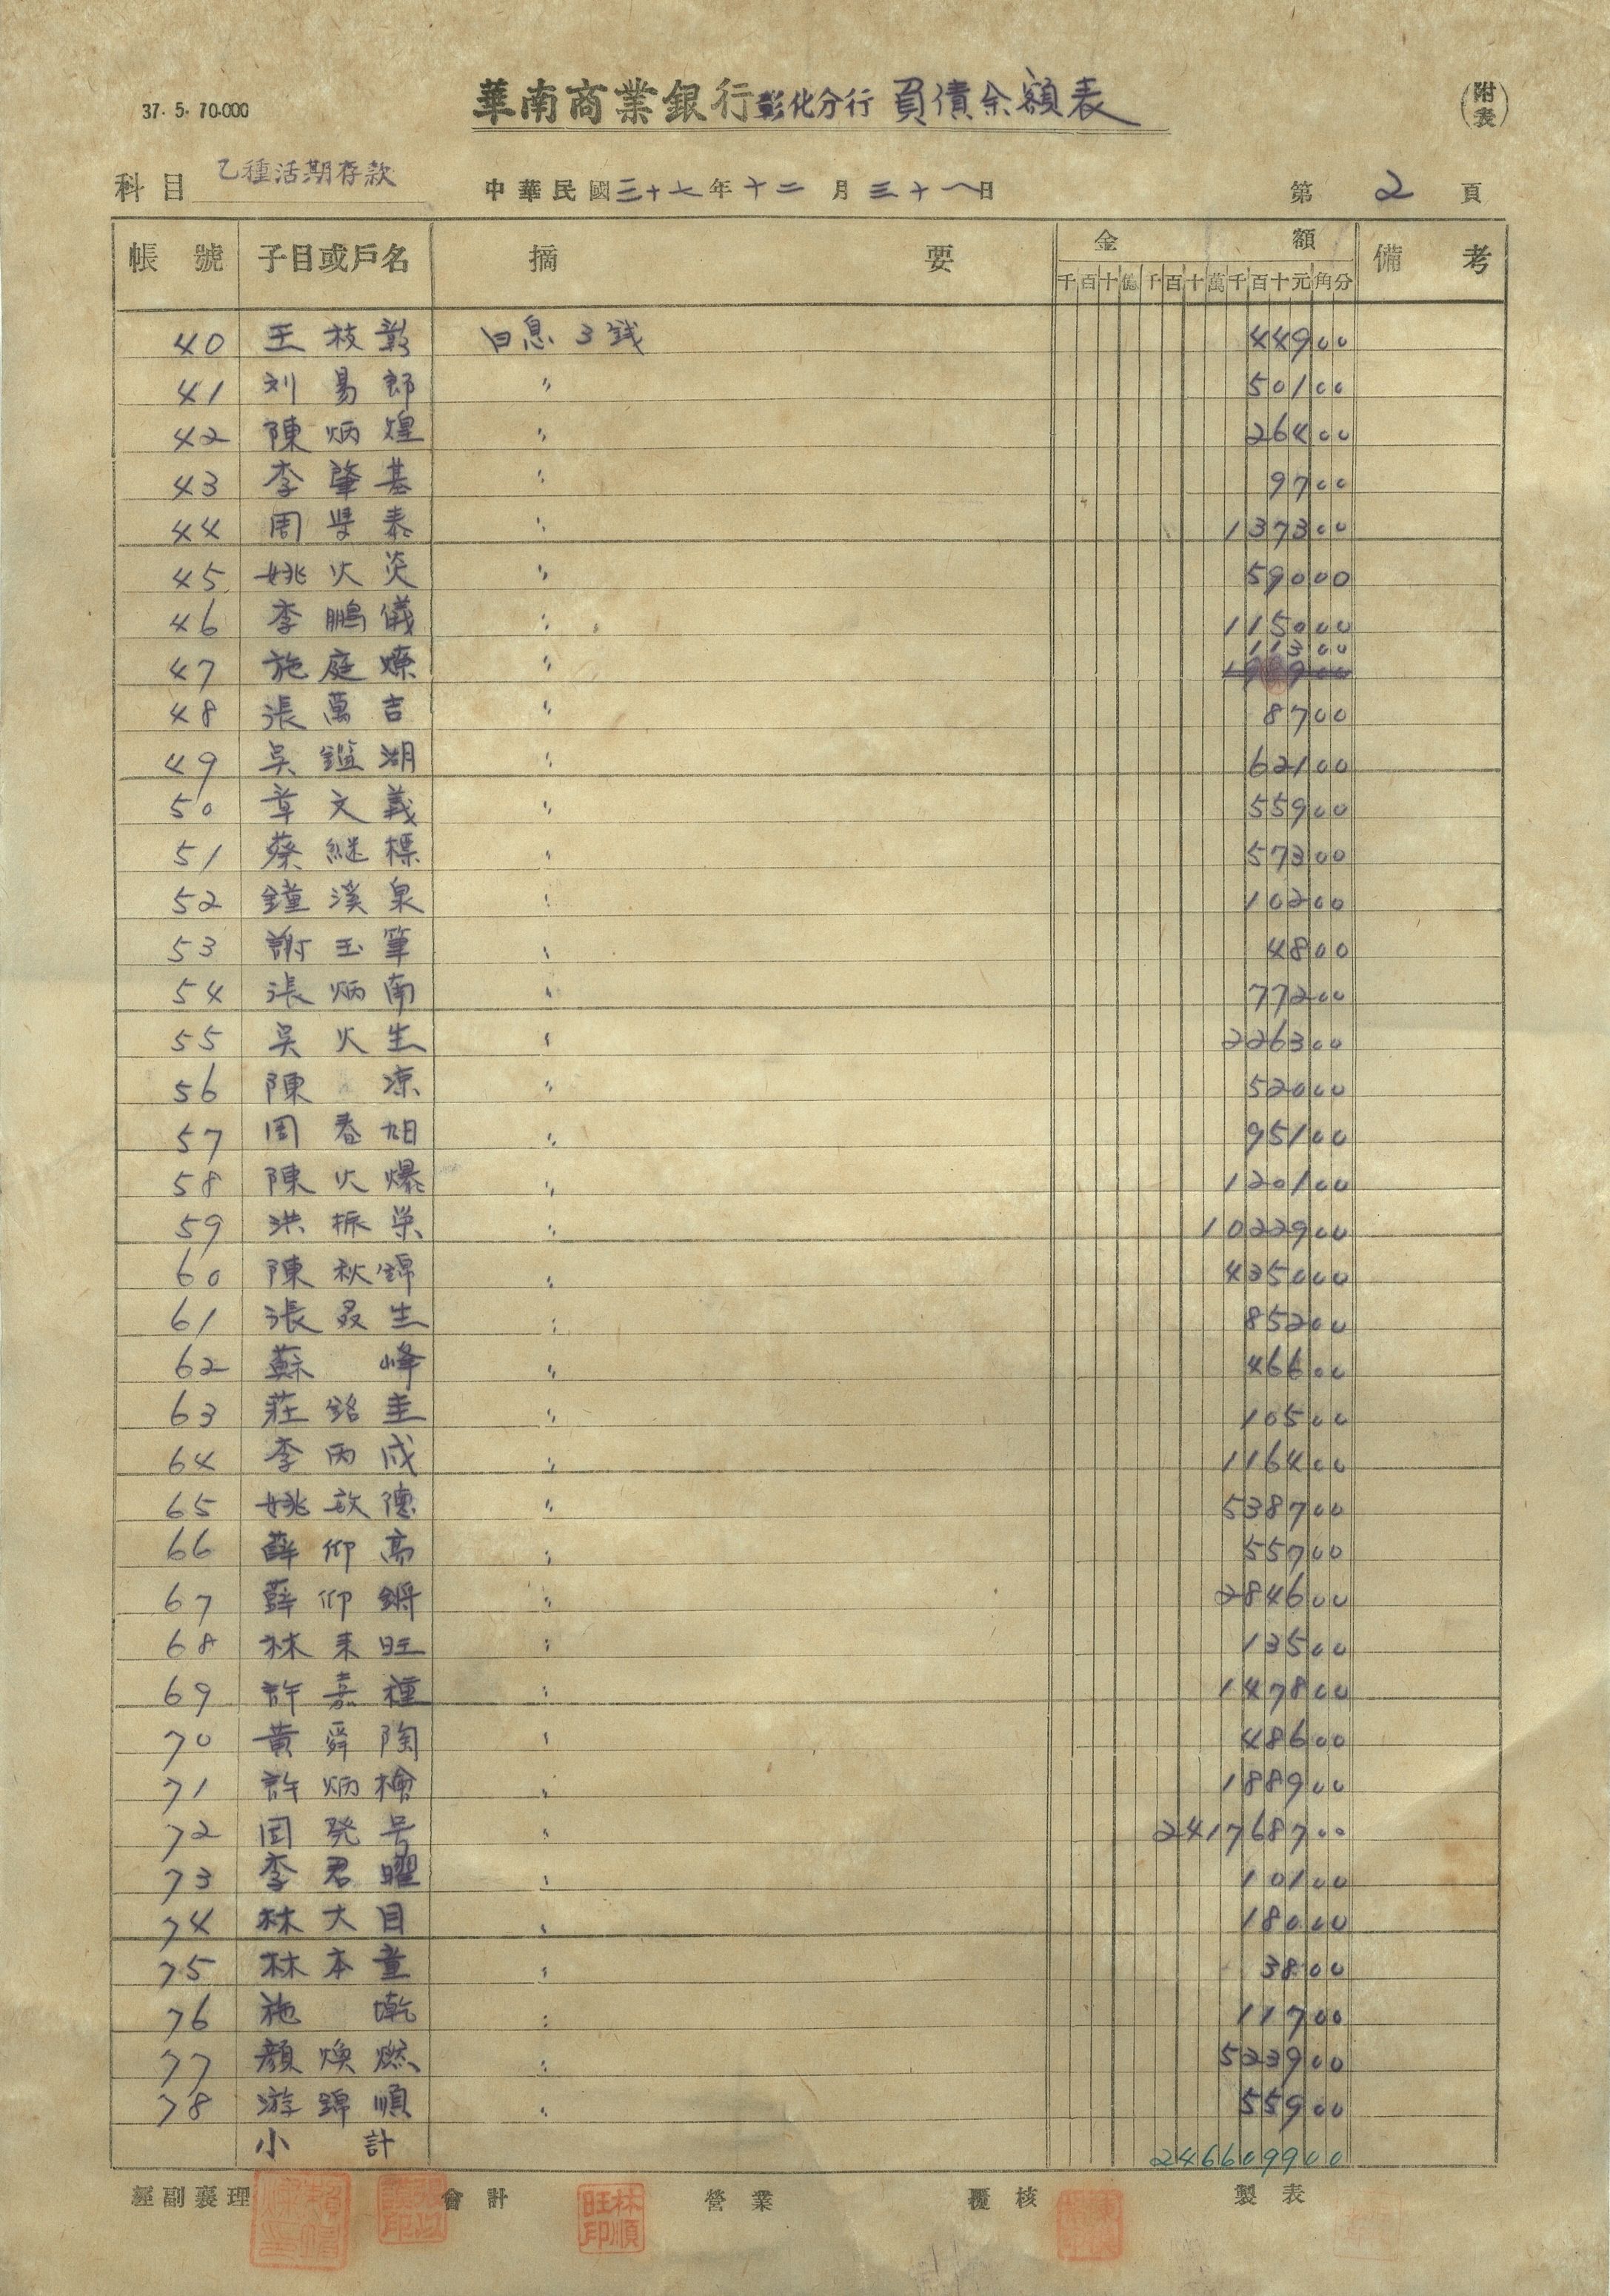 37. 5. 70.000
華南商業銀行彰化分行 負債余額表
(附表)
科目 乙種活期存款
中華民國三十七年十二月三十一日
第 2 頁
帳號 子目或戶名 摘要 金額 備考
千百十億千百十萬千百十元角分
40 王枝彰 日息3錢 44900
41 刘易郎 〃 50100
42 陳炳煌 〃 26400
43 李肇基 〃 9700
44 周堃泰 〃 137300
45 姚火炎 〃 59000
46 李鵬儀 〃 115000
11300
47 施庭燎 〃
48 張萬吉 〃 8700
49 吳鑑湖 〃 62100
50 章文義 〃 55900
51 蔡継標 〃 57300
52 鐘溪泉 〃 10200
53 謝玉筆 〃 4800
54 張炳南 〃 77200
55 吳火生 〃 226300
56 陳凉 〃 52000
57 周春旭 〃 95100
58 陳火爆 〃 120100
59 洪振栄 〃 1022900
60 陳秋錦 〃 435000
61 張叒生 〃 85200
62 蘇峰 〃 46600
63 莊銘圭 〃 10500
64 李丙成 〃 116400
65 姚啟德 〃 538700
66 薛仰高 〃 55700
67 薛仰鏘 〃 284600
68 林来旺 〃 13500
69 許嘉種 〃 147800
70 黄舜陶 〃 48600
71 許炳檜 〃 188900
72 囯発号 〃 241768700
73 李君曜 〃 10100
74 林大目 〃 18000
75 林本童 〃 3800
76 施乾 〃 11700
77 顏煥燃 〃 523900
78 游錦順 〃 55900
小計 246609900
經副襄理 會計 營業 覆核 製表
林順旺印